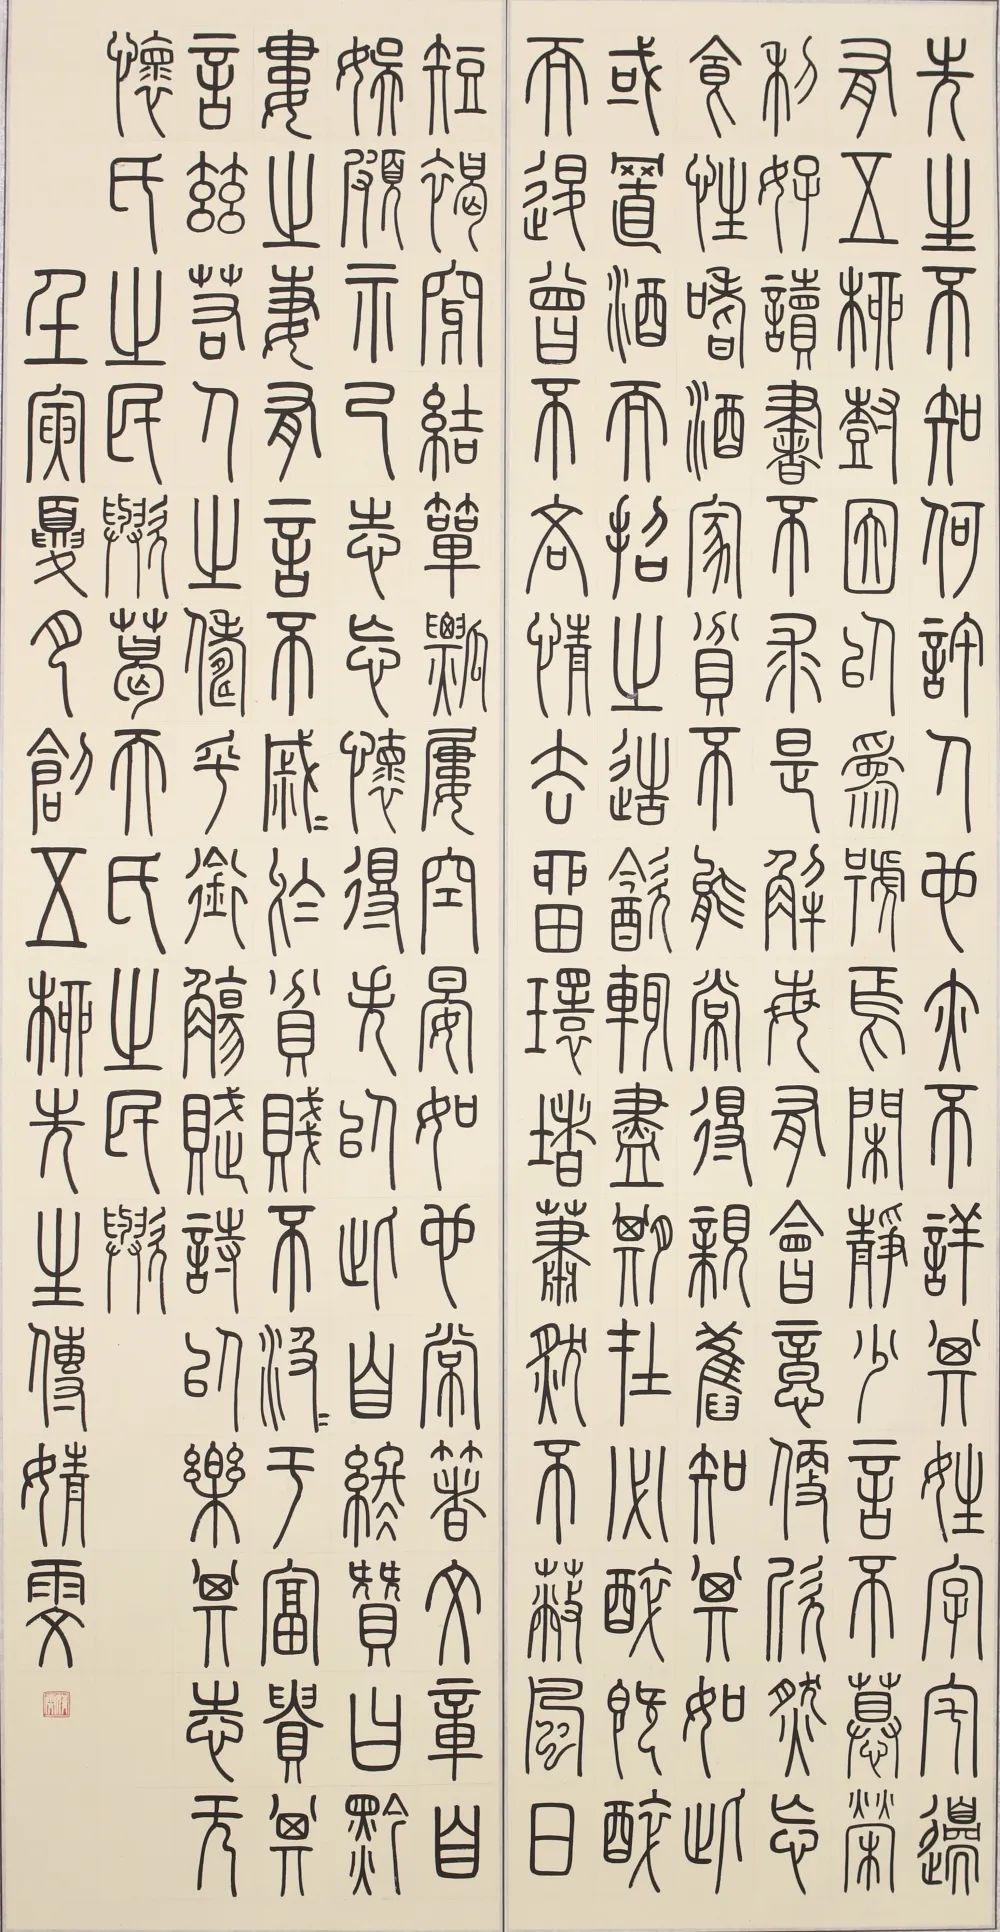 先生不知何許人也亦不詳其姓字宅邊
有五柳樹因以為號焉閑靜少言不慕榮
利好讀書不求是解每有會意便欣然忘
食性嗜酒家貧不能常得親舊知其如此
或置酒而招之造飲輒盡期在必醉既醉
而退曾不吝情去留環堵蕭然不蔽風日
短褐穿結簞瓢屢空晏如也常著文章自
娛頗示己志忘懷得失以此自終贊曰黔
婁之妻有言不戚〻於貧賤不汲〻于富貴其
言茲若人之儔乎銜觴賦詩以樂其志无
懷氏之民歟葛天氏之民歟
壬寅夏月創五柳先生傳婧雯